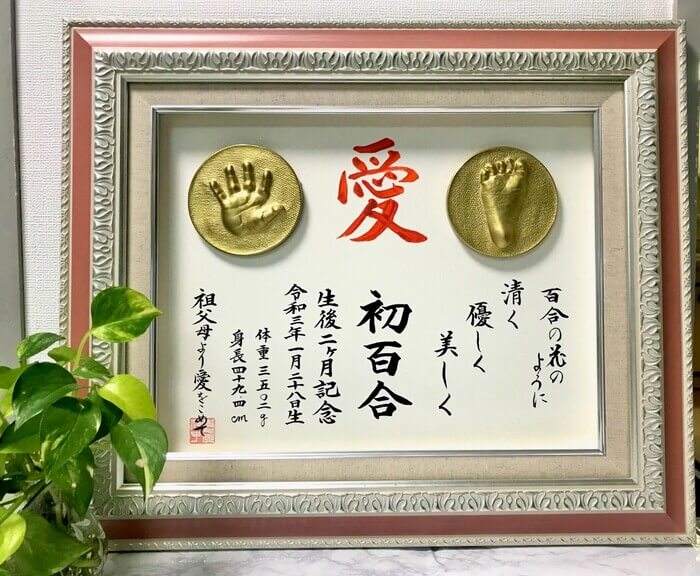 愛
百合の花の
ように
清く
優しく
美しく
初百合
生後二ヶ月記念
令和三年一月二十八日生
体重三五〇二g
身長四十九.四cm
祖父母より愛をこめて